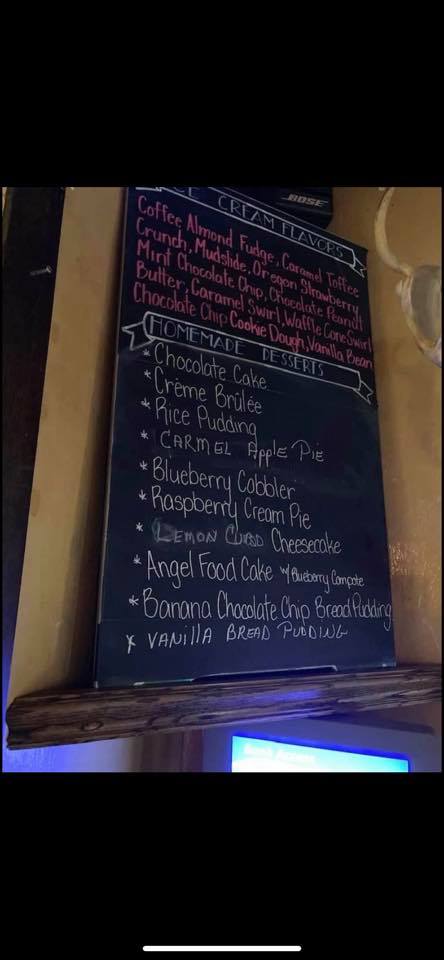 BOSE
CE CREAM FLAVORS
Coffee Almond Fudge, Caramel Toffee
Crunch, Mudslide, Oregon Strawberry,
Mint Chocolate Chip, Chocolate Peanut
Butter, Caramel Swirl, Waffle Cone Swirl
Chocolate Chip Cookie Dough, Vanilla Bean
HOMEMADE DESSERTS
* Chocolate Cake
* Crème Brûlée
* Rice Pudding
* CARMEL Apple PiE
* Blueberry Cobbler
* Raspberry Cream Pie
* LEMON CURD Cheesecake
* Angel Food Cake w/ Blueberry Compote
* Banana Chocolate Chip Bread Pudding
* VANillA BREAD PUDDING